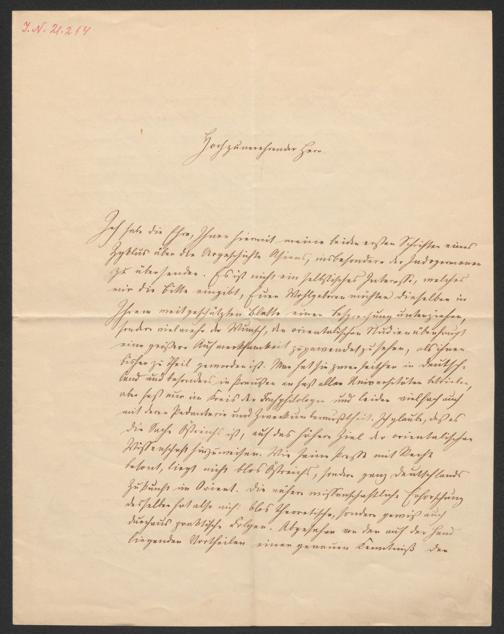 I.N. 21.214
Hochzuverehrender Herr
Ich habe die Ehre, Ihnen hiermit meine beiden ersten Schriften eines
Zyklus über die Urgeschichte Asiens, insbesondere der Indogermanen
zu übersenden. Es ist nicht ein selbstisches Interesse, welches
mir die Bitte eingibt, Euer Wohlgeboren möchten dieselben in
Ihrem weitgeschätzten Blatte einer Besprechung unterziehen,
sondern vielmehr der Wunsch, den orientalischen Studien überhaupt
eine größere Aufmerksamkeit zugewendet zu sehen, als ihnen
bisher zu Theil geworden ist. Man hat sie zwar seither in Deutsch-
land und besonders in Preußen an fast allen Universitäten betrieben,
aber fast nur im Kreis der Fachphilologen und leider vielfach auch
mit deren Pedanterie und. Ich glaube, daß es
die Sache Östreichs ist, auf das höhere Ziel der orientalischen
Wissenschaft hinzuweisen. Wie seine Presse mit Recht
betont, liegt nicht blos Östreichs, sondern ganz Deutschlands
Zukunft im Orient. Die nähere wissenschaftliche Erforschung
desselben hat also nicht blos theoretische, sondern gewiß auch
durchaus praktische Folgen. Abgesehen von den auf der Hand
liegenden Vortheilen einer genauen Kenntniß der